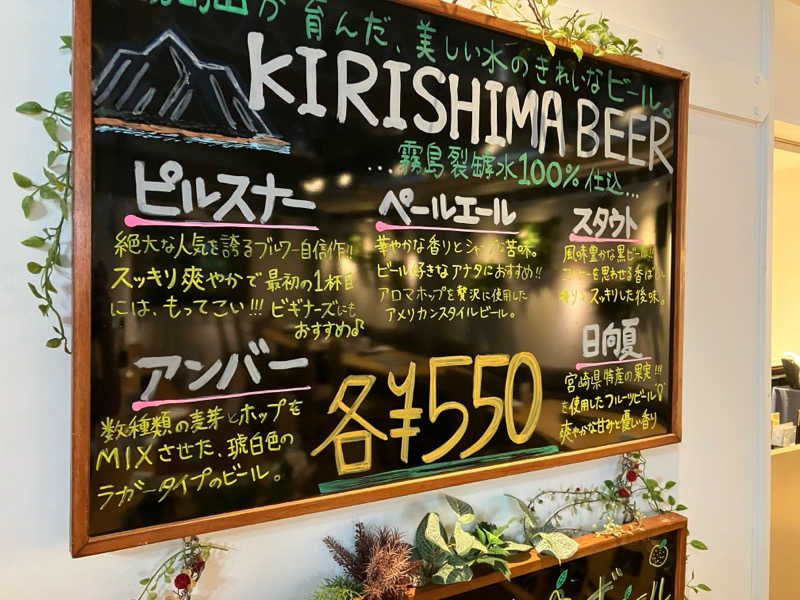 山が育んだ、美しい水のきれいなビール。
KIRISHIMA BEER
...霧島裂罅水100%仕込...
ピルスナー
絶大な人気を誇るブルワー自信作!!
スッキリ爽やかで最初の1杯目
には、もってこい!!! ビギナーズにも
おすすめ♪
ペールエール
華やかな香りとシャープな苦味。
ビール好きなアナタにおすすめ!!
アロマホップを贅沢に使用した
アメリカンスタイルビール。
スタウト
風味豊かな黒ビール!!
コーヒーを思わせる香ばしい
香りとスッキリした後味。
アンバー
数種類の麦芽とホップを
MIXさせた、琥白色の
ラガータイプのビール。
各¥550
日向夏
宮崎県特産の果実!!!
を使用したフルーツビール♡
爽やかな甘みと優しい香り